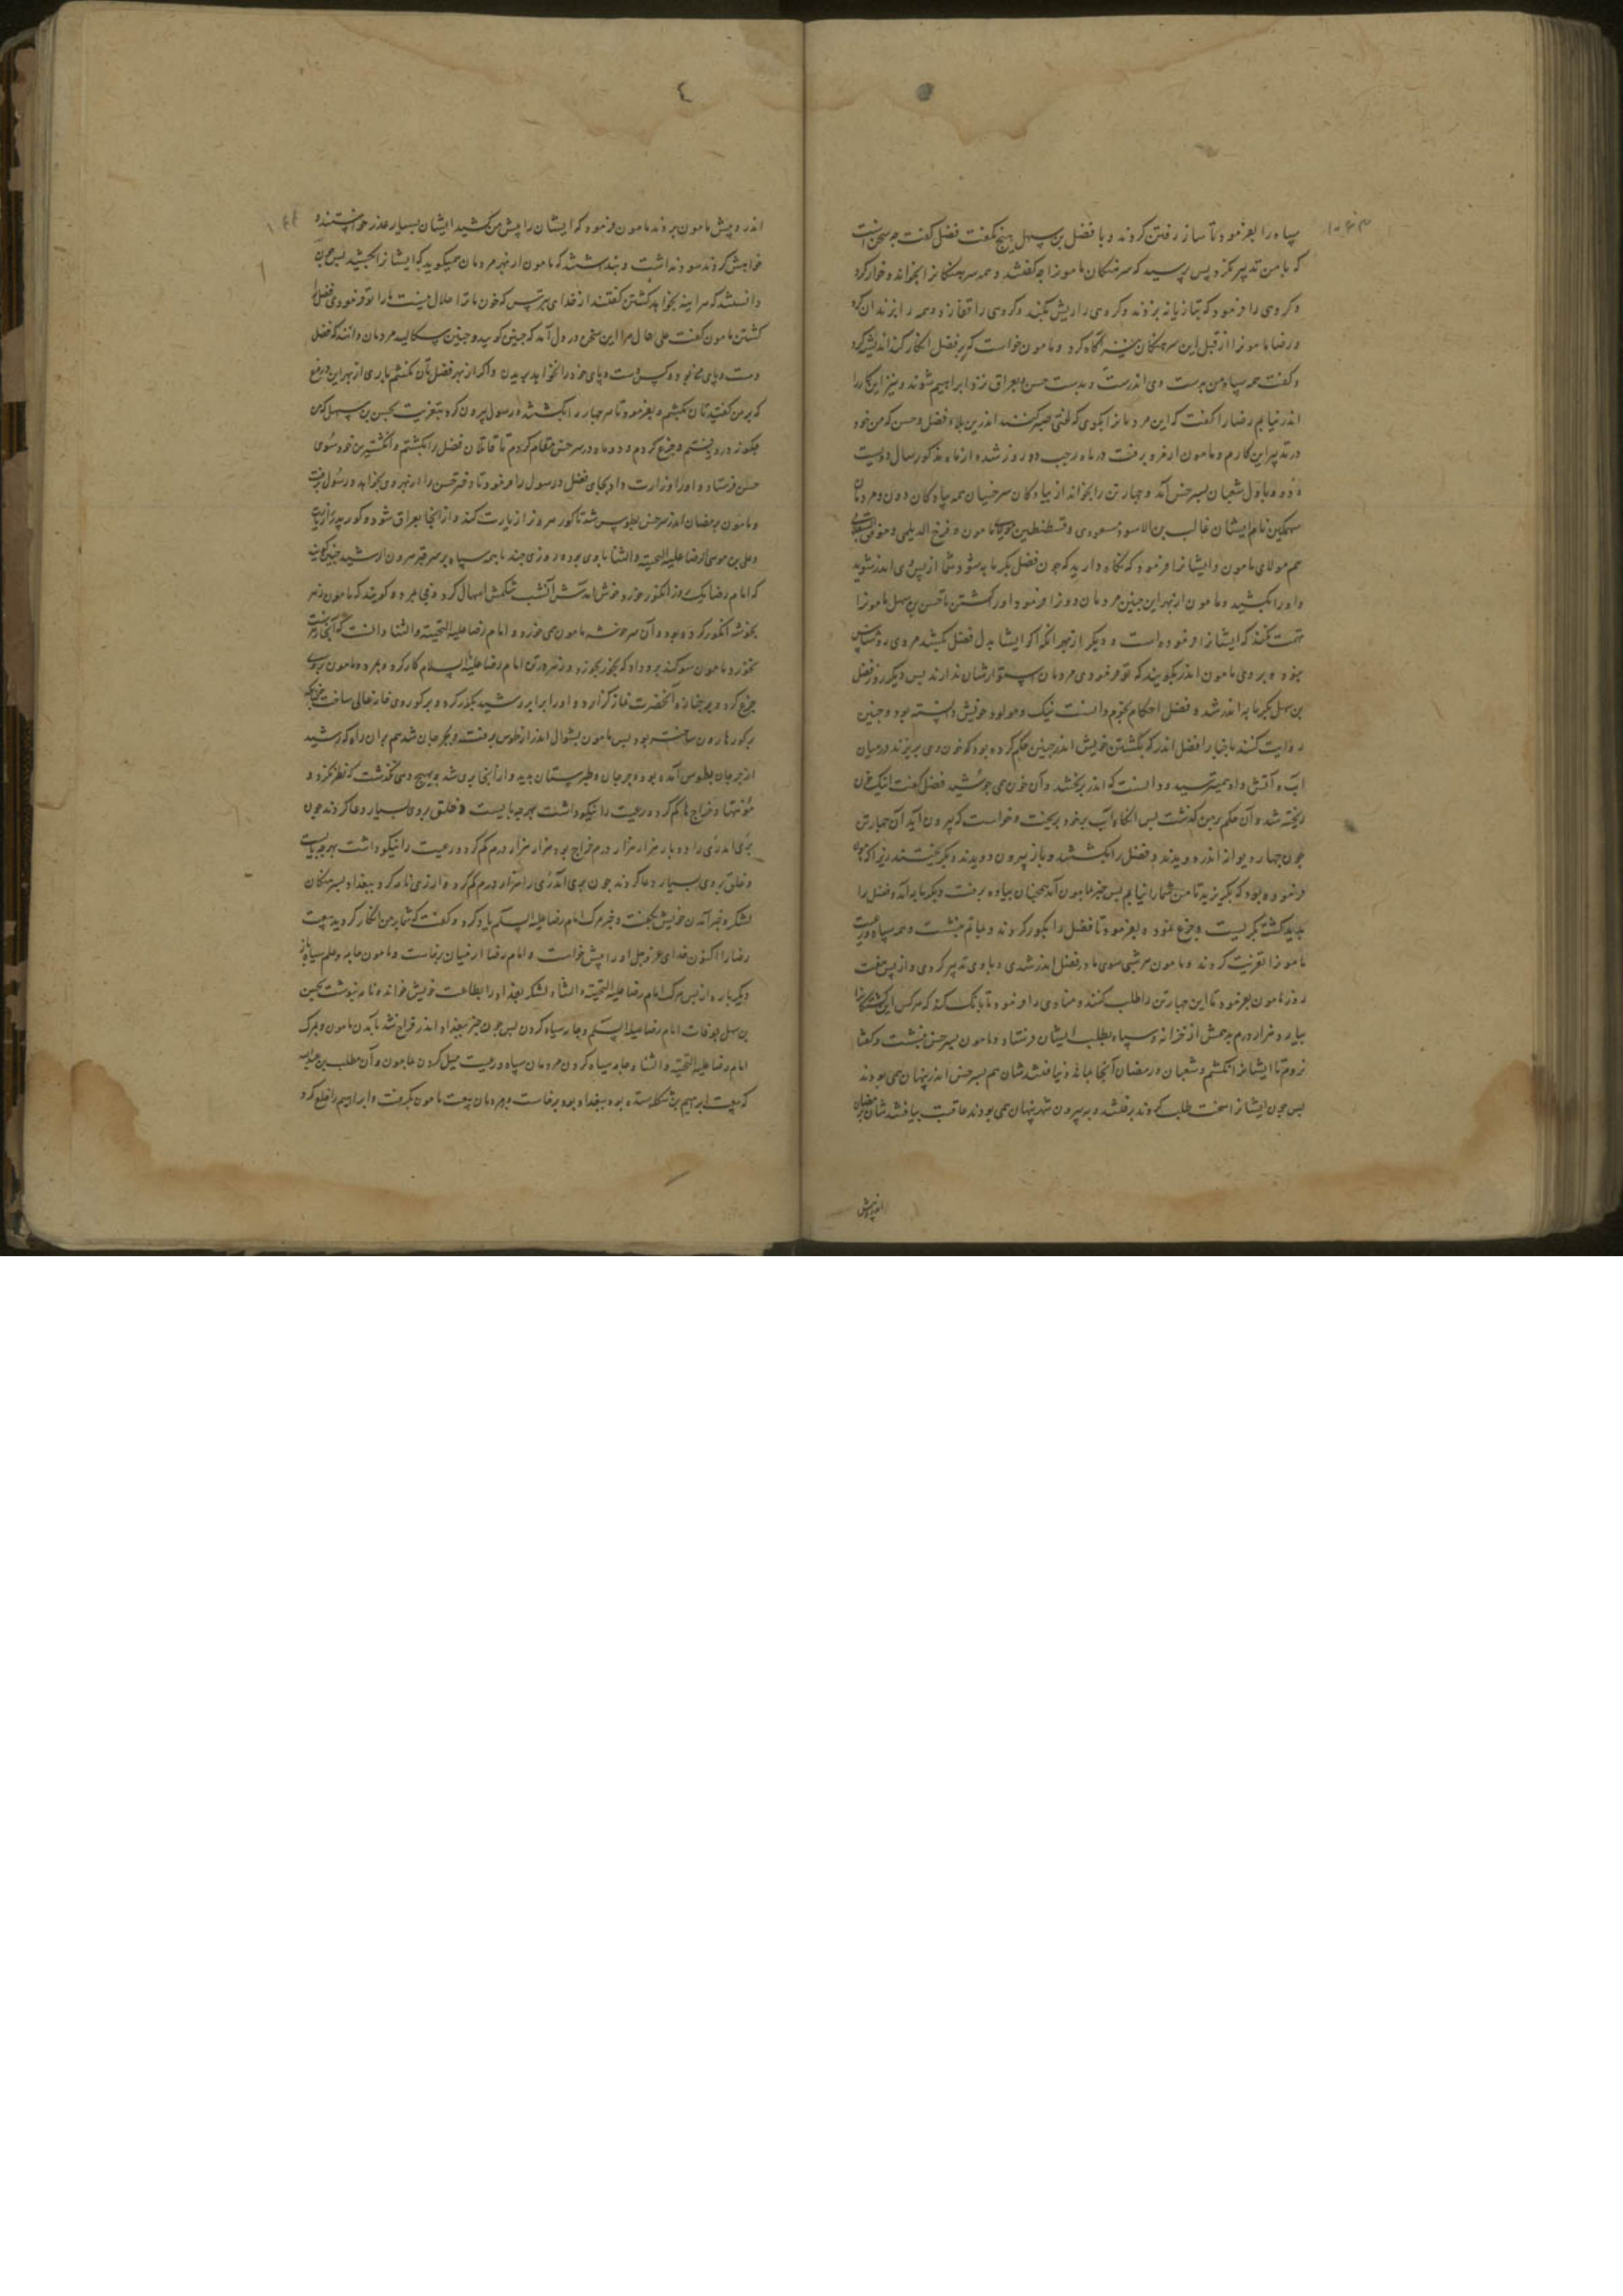 سپاه را بفرمود تا ساز رفتن کردند و با فضل بن سهل هیچ نگفت فضل گفت چه سخن است
که با من تدبیر نکرد پس پرسید که سرهنکان مامونرا چه گفتند و همه سرهنکانرا بخواند و خوار کرد
و کروهی را فرمود که تازیانه بزدند و کروهی را ریش بکندند و کروهی را قفا زد و همه را بزندان کرد
و رضا مامونرا از قبل این سرهنکان نیز آکاه کرد و مامون خواست که بر فضل انکار کند اندیشه کرد
و کفت همه سپاه من بدست وی اندرست و بدست حسن و بعراق نزد ابراهیم شوند و نیز این کار را
اندر نیابم رضا را کفت که این مردمانرا بکوی که لختی صبر کنند اندرین بلاء فضل و حسن که من خود
در تدبیر این کارم و مامون از مرو برفت در ماه رجب ده روز شده از ماه مذکور سال دویست
و دو و باول شعبان بسرخس آمد و چهار تن را بخواند از پیادکان سرخسیان همه پیادکان دون و مردمان
سهمکین نام ایشان غالب بن الاسود مسعودی و قسطنطین مولای مامون و فرخ الدیلمی و موفق
هم مولای مامون و ایشانرا فرمود که نکاه دارید که چون فضل بکرمابه شود شما از پس وی اندر شوید
و او را بکشید و مامون از بهر این چنین مردمان دون را فرمود او را کشتن تا حسن بن سهل مامونرا
تهمت نکند که ایشانرا فرموده است و دیکر از بهر آنکه اکر ایشان بدل فضل بکشد مردی روشناس
بود و بر روی مامون اندر بکویند که تو فرمودی مردمان استوارشان ندارند پس دیکر روز فضل
بن سهل بکرمابه اندر شد و فضل احکام نجوم دانست نیک و مولود خویش دانسته بود و چنین
روایت کنند باخبار فضل اندر که بکشتن خویش اندر چنین حکم کرده بود که خون وی بریزند در میان
آب و آتش و او همی ترسید و دانست که اندر بخشد و آن خون همی جوشید فضل کفت اینک خون
ریخته شد و آن حکم بر من کذشت پس آنکاه آب بر خود بریخت و خواست که بیرون آید آن چهار تن
چون چهار دیوانه اندر دویدند و فضل را بکشتند و باز بیرون دویدند و بکریختند زیرا که مامون
فرموده بود که بکریزید تا من شما را نیابم پس خبر مامون آمد همچنان پیاده برفت و بکرمابه آمد و فضل را
بدید کشته بکریست و جزع نمود و بفرمود تا فضل را بکور کردند و بماتم بنشست و همه سپاه و رعیت
مامونرا تعزیت کردند و مامون هر شبی سوی مادر فضل اندر شدی و با وی تدبیر کردی و از پس هفت
روز مامون بفرمود تا این چهار تن را طلب کنند و منادی را فرمود تا بانک کند که هر کس این کشندکانرا
بیارد هزار درم بدهمش از خزانه و سپاه بطلب ایشان فرستاد و مامون بسرخس بنشست و کفتا
نروم تا ایشانرا نکشم و شعبان و رمضان آنجا بماند و نیافتندشان هم بسرخس اندر پنهان همی بودند
پس چون ایشانرا سخت طلب کردند برفتند و به بیرون شهر پنهان همی بودند عاقبت بیافتندشان برمضان
اندر و پیش
اندر و پیش مامون بردند مامون فرمود که ایشان را پیش من کشید ایشان بسیار عذر خواستند و
خواهش کردند سود نداشت و پنداشتند که مامون از بهر مردمان همیکوید که ایشانرا بکشید پس چون
دانستند که هر آینه بخواهد کشتن کفتند از خدای بترس که خون ما ترا حلال نیست ما را تو فرمودی فضل را
کشتن مامون کفت علی حال مرا این سخن در دل آمد که چنین کویید و چنین سکالید مردمان دانند که فضل
دست و پای من بود و کس دست و پای خود را نخواهد بریدن و اکر از بهر فضل تان نکشم باری از بهر این دروغ
که بر من کفتید تان بکشم و بفرمود تا هر چهار را بکشتند و رسول بیرون کرد بتعزیت بحسن بن سهل که من
چکونه درد و جزع کردم و دو ماه در سرخس مقام کردم تا قاتلان فضل را بکشتم و انکشترین خود سوی
حسن فرستاد و او را وزارت داد بجای فضل و رسول را فرمود تا دختر حسن را از بهر وی بخواهد و رسول برفت
و مامون برمضان اندر از سرخس بطوس شد تا کور هرون را زیارت کند و از آنجا بعراق شود و کور پدر را زیارت
و علی بن موسی الرضا علیه التحیة و الثنا با وی بود و روزی چند با همه سپاه بر سر قبر هرون الرشید چنین کویند
که امام رضا یک روز انکور خورد و خوش آمدش آن شب شکمش اسهال کرد و همی بمرد و کویند که مامون زهر
بخوشه انکور کرده بود و آن سر خوشه مامون همی خورد و امام رضا علیه التحیة و الثنا دانست که آنجا زهرست
نخورد مامون سوکند برو داد که بخور بخورد و زهر در تن امام رضا علیه السلام کار کرد و بمرد و مامون بروی
جزع کرد و بر جنازه آنحضرت نماز کزارد و او را برابر رشید بکور کرد و بر کور وی خانه عالی ساخت چنانکه
بر کور هارون ساخته بود پس مامون بشوال اندر از طوس برفتند و بجرجان شد هم بران راه که رشید
از جرجان بطوس آمده بود و جرجان و طبرستان بدید و از آنجا بری شد و بهیچ دهی نکذشت که نظر نکرد و
مؤنتها و خراج ها کم کرد و رعیت را نیکو داشت بهر چه بایست و خلق بروی بسیار دعا کردند چون
بری اندر ری را دوبار هزار هزار درم خراج بود هزار هزار درم کم کرد و رعیت را نیکو داشت بهر چه بایستی
و خلق بروی بسیار دعا کردند چون بری آمد ری را هزار درم کم کرد و از ری نامه کرد ببغداد بسرهنکان
لشکر و خبر آمدن خویش بکفت و خبر مرک امام رضا علیه السلام یاد کرد و کفت که شما بر من انکار کردید بیعت
رضا را اکنون خدای عز و جل او را پیش خواست و امام رضا از میان برخاست و مامون جامه و علم سیاه باز
دیکر باره از پس مرک امام رضا علیه التحیة و الثناء لشکر بغداد را بطاعت خویش خوانده نامه نبوشت بحسن
بن سهل بوفات امام رضا علیه السلم و جامه سیاه کردن پس چون خبر ببغداد اندر فراخ شد بآمدن مامون و بمرک
امام رضا علیه التحیة و الثنا و جامه سیاه کردن مردمان سپاه و رعیت میل کردن بمامون و آن مطلب بن عبدالله
که بیعت ابرهیم بن شکله ستده بود ببغداد بود برخاست و مردمان بیعت مامون بکرفت و ابراهیم را خلع کرد